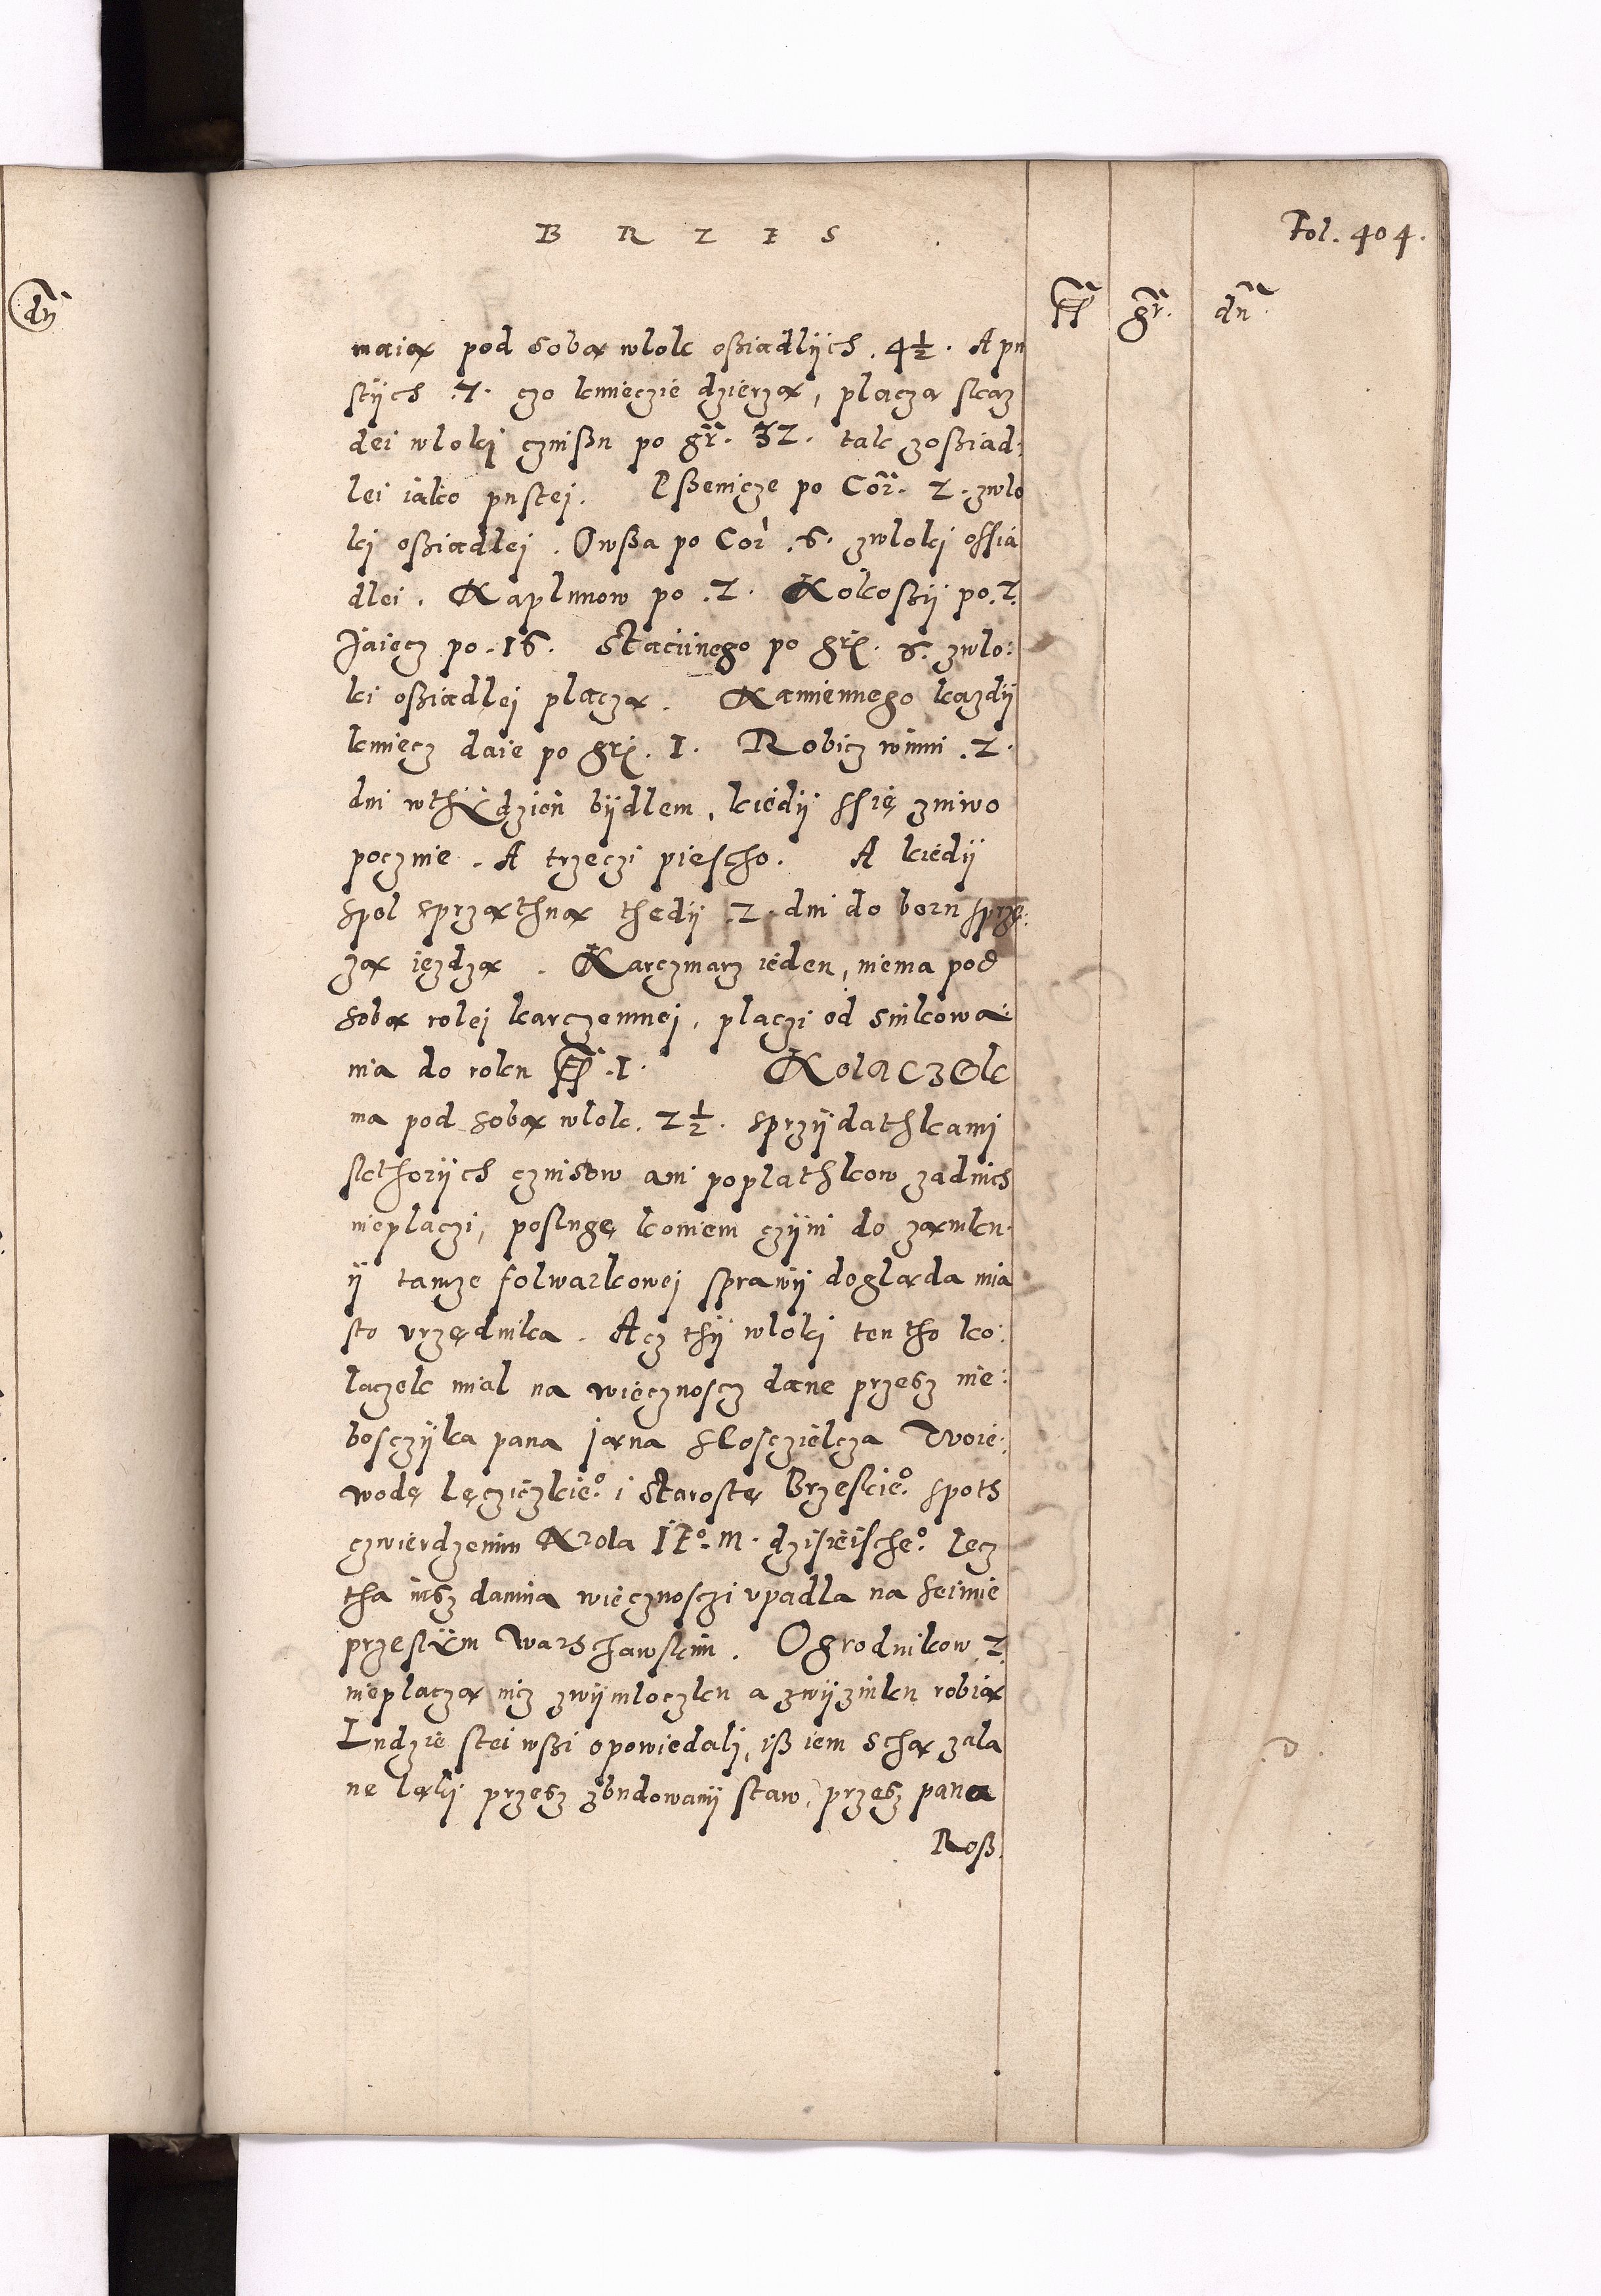 B R Z E S
Fol. 404.
ff gr. dn
dn
maią pod sobą wlok oßiadlÿch . 4½ . A pu
stÿch .7. czo kmieczie dzierzą, placzą skaz
dei wloki czinßu po gr. 32. tak zoßiad:
lei iako pustej. Pßenicze po Cor. 2. zwlo
kj oßiadlej. Owßa po Cor .6. zwlokj ossia
dlei. Kaplunow po .2. Kokoßÿ po .2.
Jaiecz po .16. Staciinego po gr. 8. zwlo:
ki oßiadlej placzą. Kamiennego kazdÿ
kmiecz daie po gr. 1. Robicz winni .2.
dni wthÿdzień bÿdlem, kiedÿ ssię zniwo
pocznie. A trzeczi piescho. A kiedÿ
spol sprzathną thedÿ .2. dni do boru sprzę:
zą iezdzą. Karczmarz ieden, niema pod
sobą rolej karczemnej, placzi od sinkowa:
nia do roku ff .1. Kolaczek
ma pod sobą wlok. 2½. sprzÿdathkami
skthorÿch czinsow ani poplathkow zadnich
nieplaczi, poslugę koniem czÿni do zamku
ÿ tamze folwarkowej sprawÿ dogląda mia
sto vrzędnika. Acz thÿ wlokj ten tho ko:
laczek mial na wiecznoscz dane przesz nie:
bosczÿka pana Jana Kosczielcza Woie:
wodę Lęczickie.º i Starostę Brzeskie.º spoth
czwierdzeniu Krola JE.º M. dzisieische.º lecz
tha insz danina wiecznosczi vpadla na seimie
przeslÿm Warschawskim. Ogrodnikow .2.
nieplaczą nicz zwÿmloczku a zwÿzinku robią
Ludzie stei wßi opowiedalj, iß iem scha zala
ne ląkj przesz zbudowanÿ staw, przesz pana
Roß.